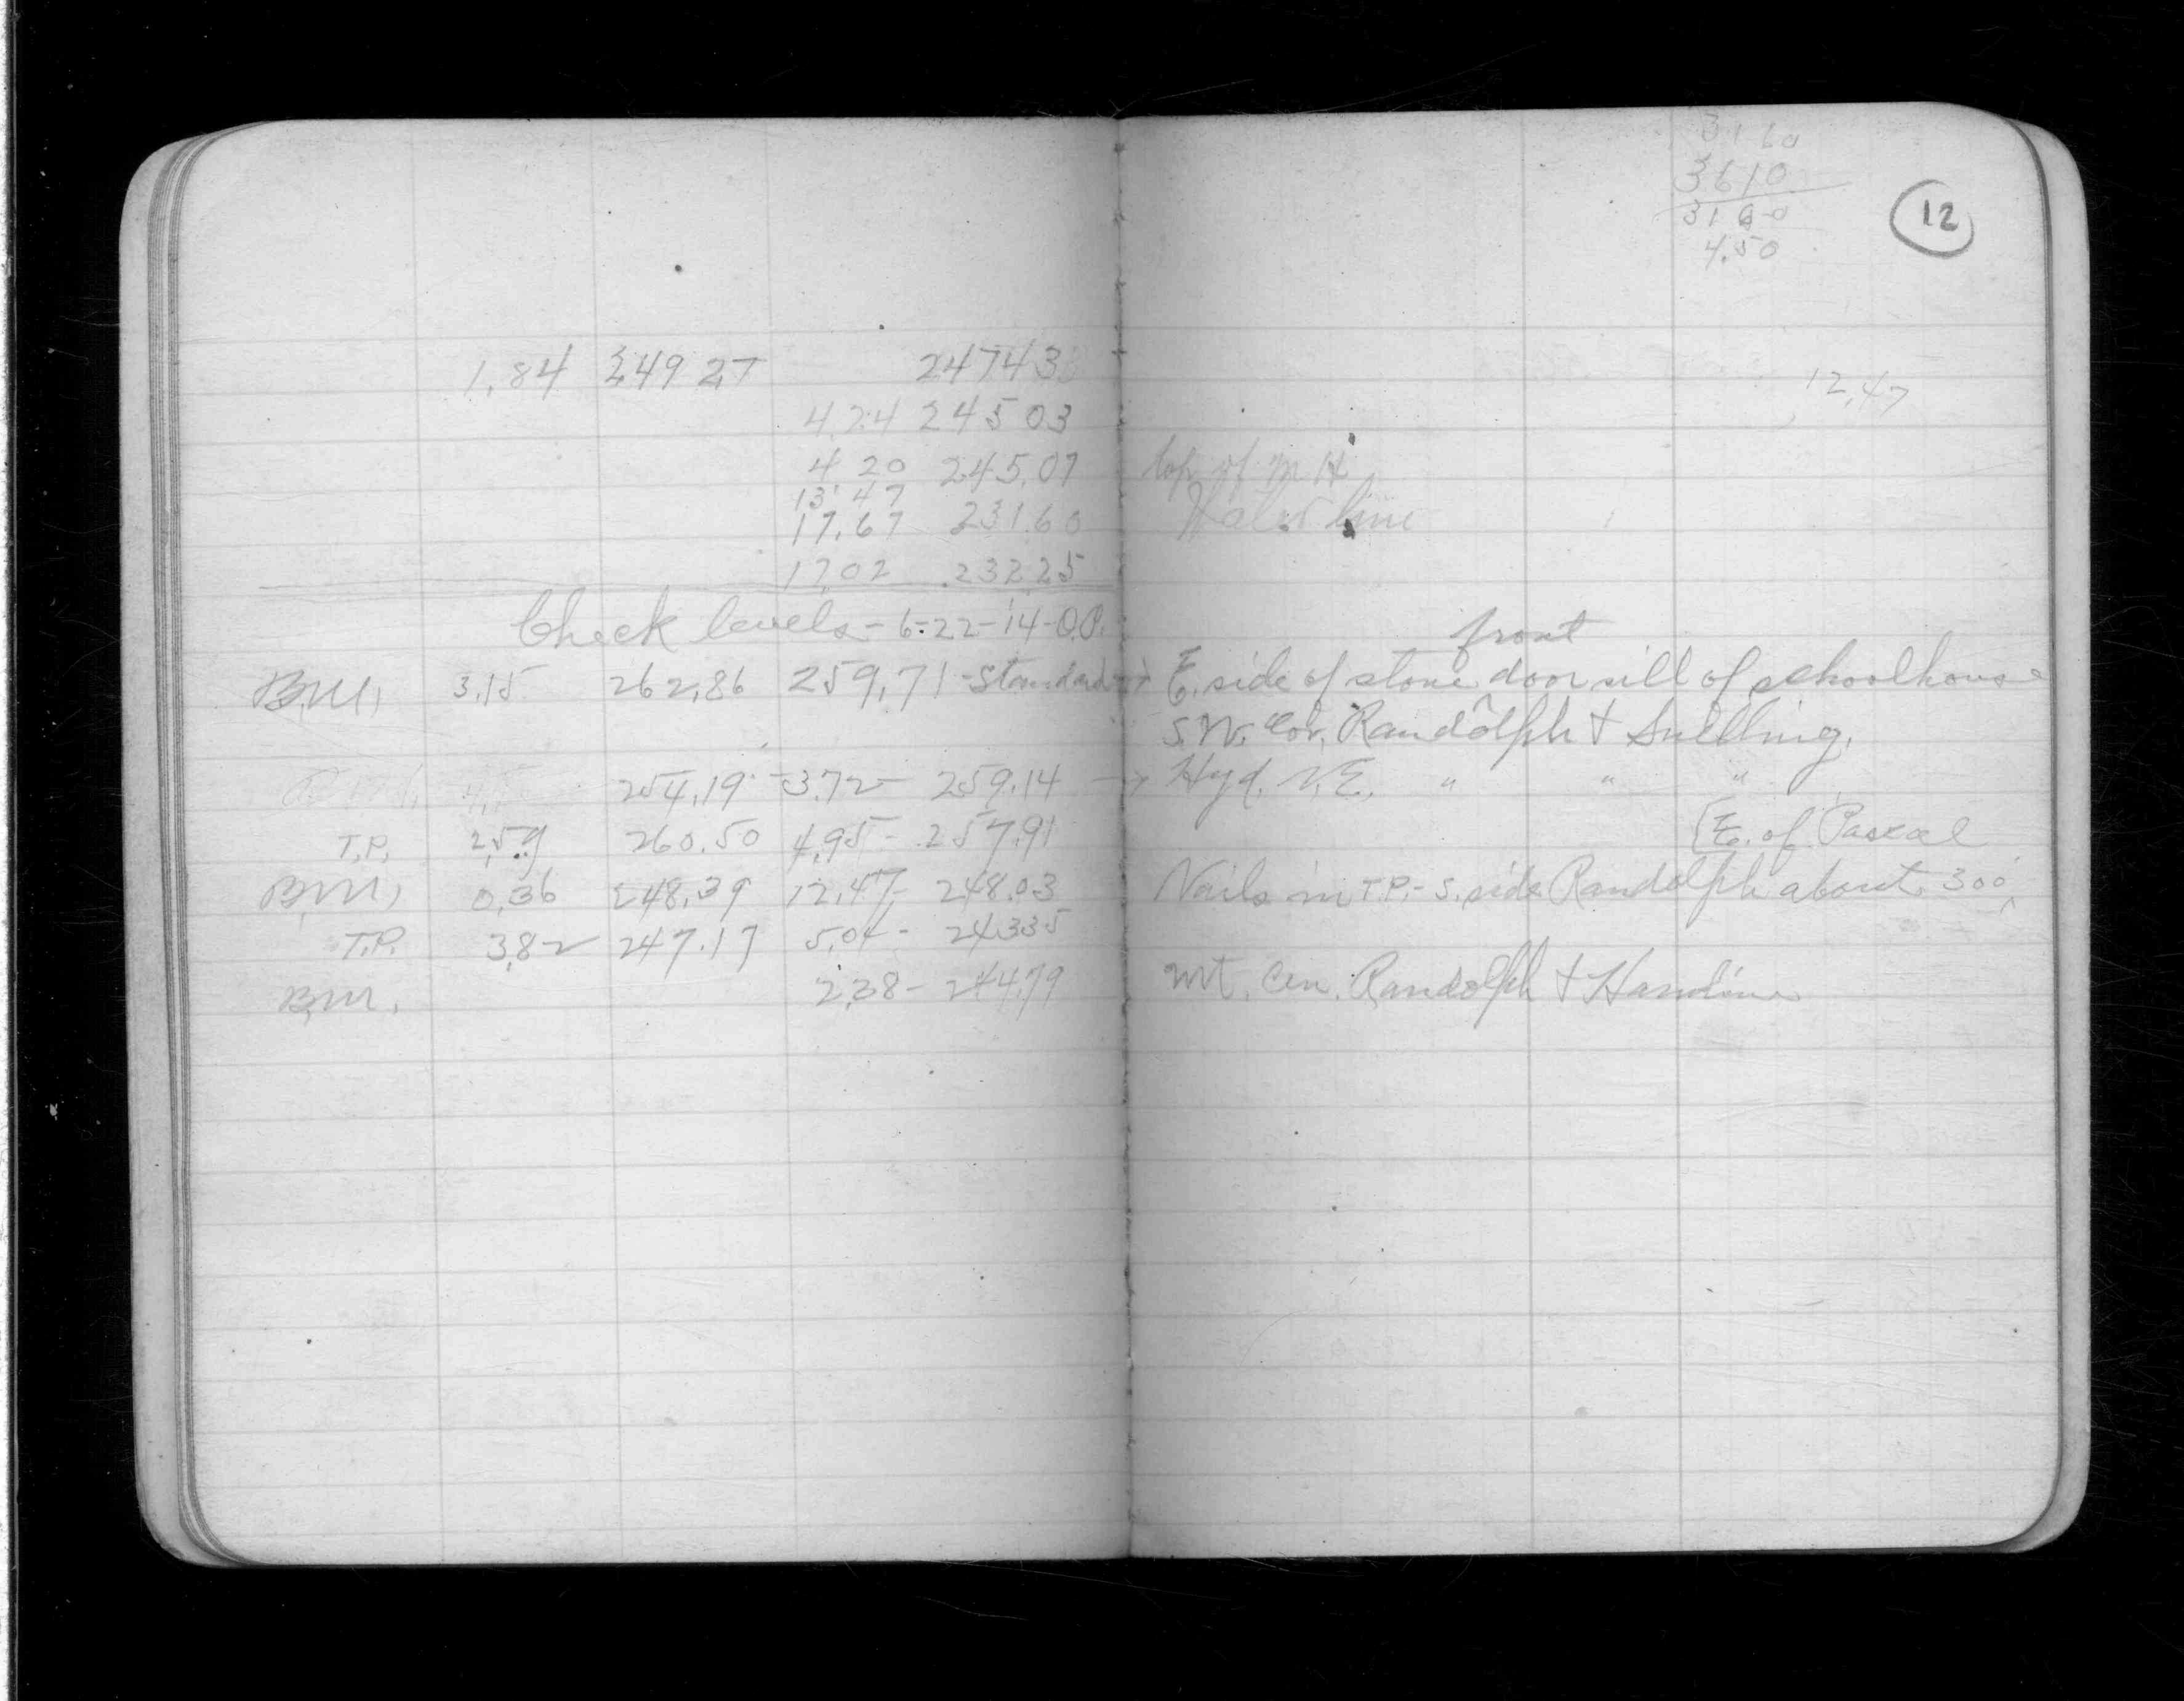 3160
3610
3160
4.50
12
1.84 249 27 247 43
12.47
4.24 245 03
4.20 245.07 top of M H
13.47
17.67 231.60 Water line
17.02 232.25
Check levels - 6-22-14-O.P.
front
B.M. 3.15 262.86 259.71 - Standard → E. side of stone door sill of schoolhouse
S.W. Cor. Randolph & Snelling.
254.19 - 3.72 - 259.14 → Hyd. N.E. " " "
T.P. 2.59 260.50 4.95 - 257.91 [E. of Pascal
B.M. 0.36 248.39 12.47 - 248.03 Nails in T.P. - S. side Randolph about 300'
T.P. 3.82 247.17 5.04 - 243.35
B.M. 2.38 - 244.79 Mt. Cen. Randolph & Hamline